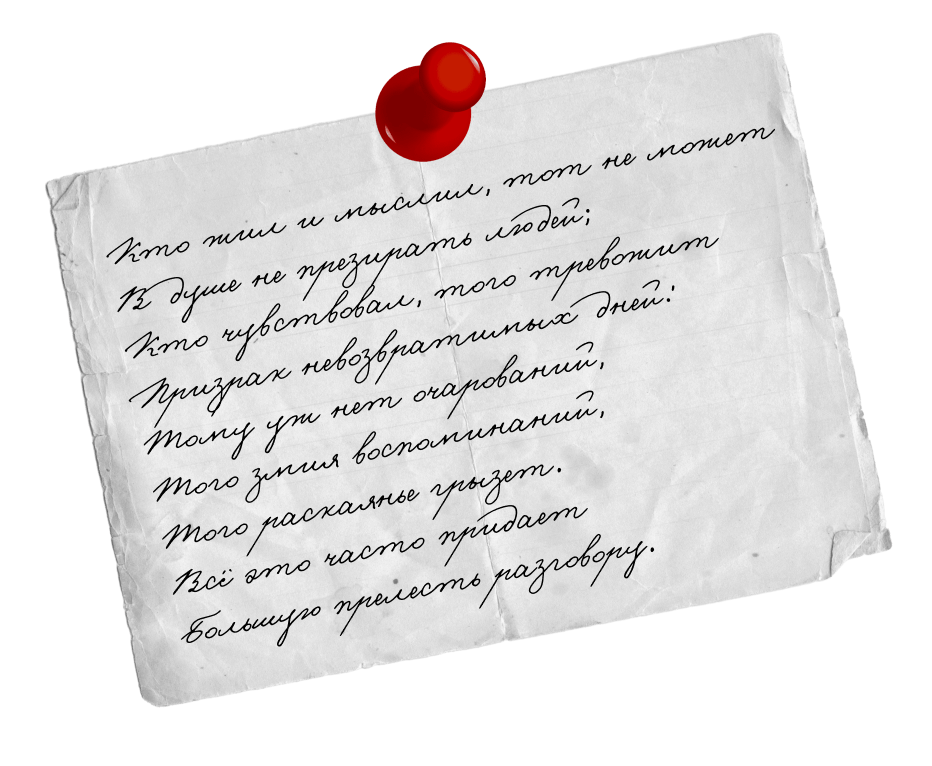 Кто жил и мыслил, тот не может
В душе не презирать людей;
Кто чувствовал, того тревожит
Призрак невозвратимых дней:
Тому уж нет очарований,
Того змия воспоминаний,
Того раскаянье грызет.
Всё это часто придает
Большую прелесть разговору.